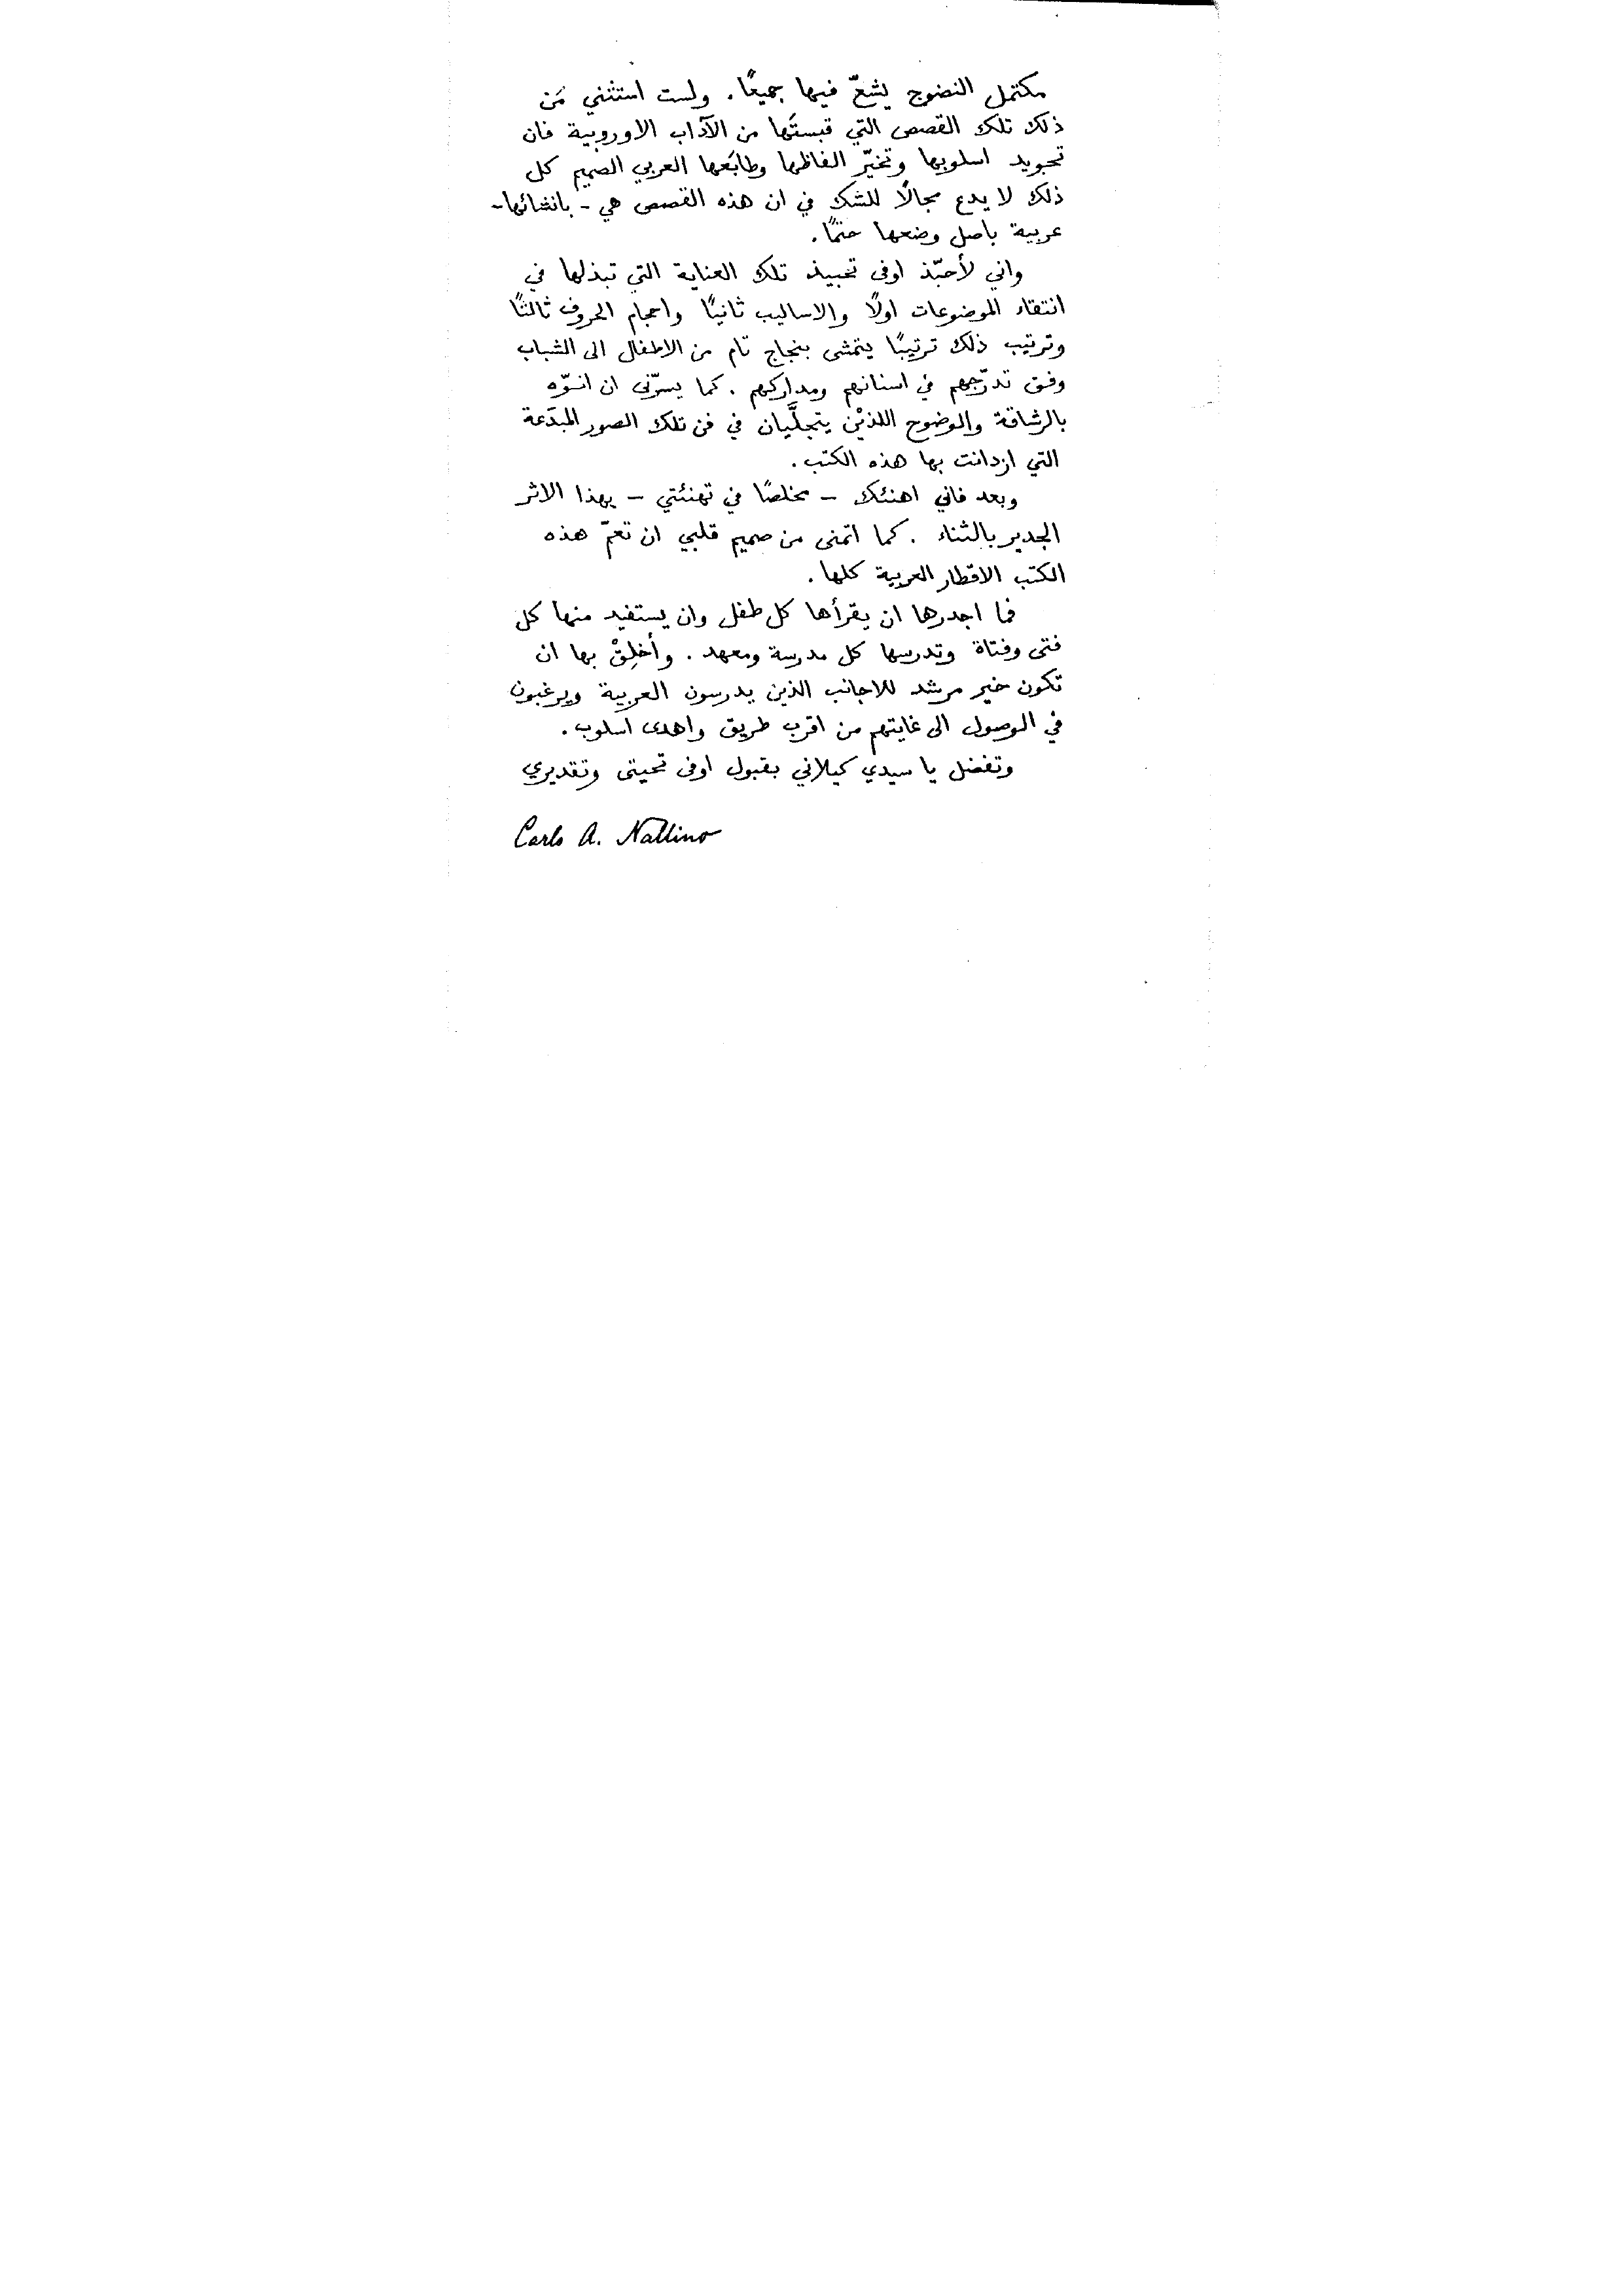 مكتمل النضوج يشعّ فيها جميعًا. ولست استثني مَن
ذلك تلك القصص التي قبستَها من الآداب الاوروبية فان
تجويد اسلوبها وتخيّر الفاظها وطابَعها العربي الصميم كل
ذلك لا يدع مجالًا للشك في ان هذه القصص هي - بانشائها -
عربية باصل وضعها حتمًا.
واني لأحبّذ اوفى تحبيذ تلك العناية التي تبذلها في
انتقاء الموضوعات اولًا والاساليب ثانيًا واحجام الحروف ثالثًا
وترتيب ذلك ترتيبًا يتمشى بنجاح تام من الاطفال الى الشباب
وفق تدرّجهم في اسنانهم ومداركهم. كما يسرّنى ان انوّه
بالرشاقة والوضوح اللذيْن يتجلَّيان في فن تلك الصور المبدَعة
التي ازدانت بها هذه الكتب.
وبعد فاني اهنئك - مخلصًا في تهنئتي - بهذا الاثر
الجدير بالثناء. كما اتمنى من صميم قلبي ان تعمّ هذه
الكتب الاقطار العربية كلها.
فما اجدرها ان يقرأها كل طفل وان يستفيد منها كل
فتى وفتاة وتدرسها كل مدرسة ومعهد. وأخلِقْ بها ان
تكون خير مرشد للاجانب الذين يدرسون العربية ويرغبون
في الوصول الى غايتهم من اقرب طريق واهدى اسلوب.
وتفضل يا سيدي كيلاني بقبول اوفى تحيتى وتقديري
Carlo A. Nallino